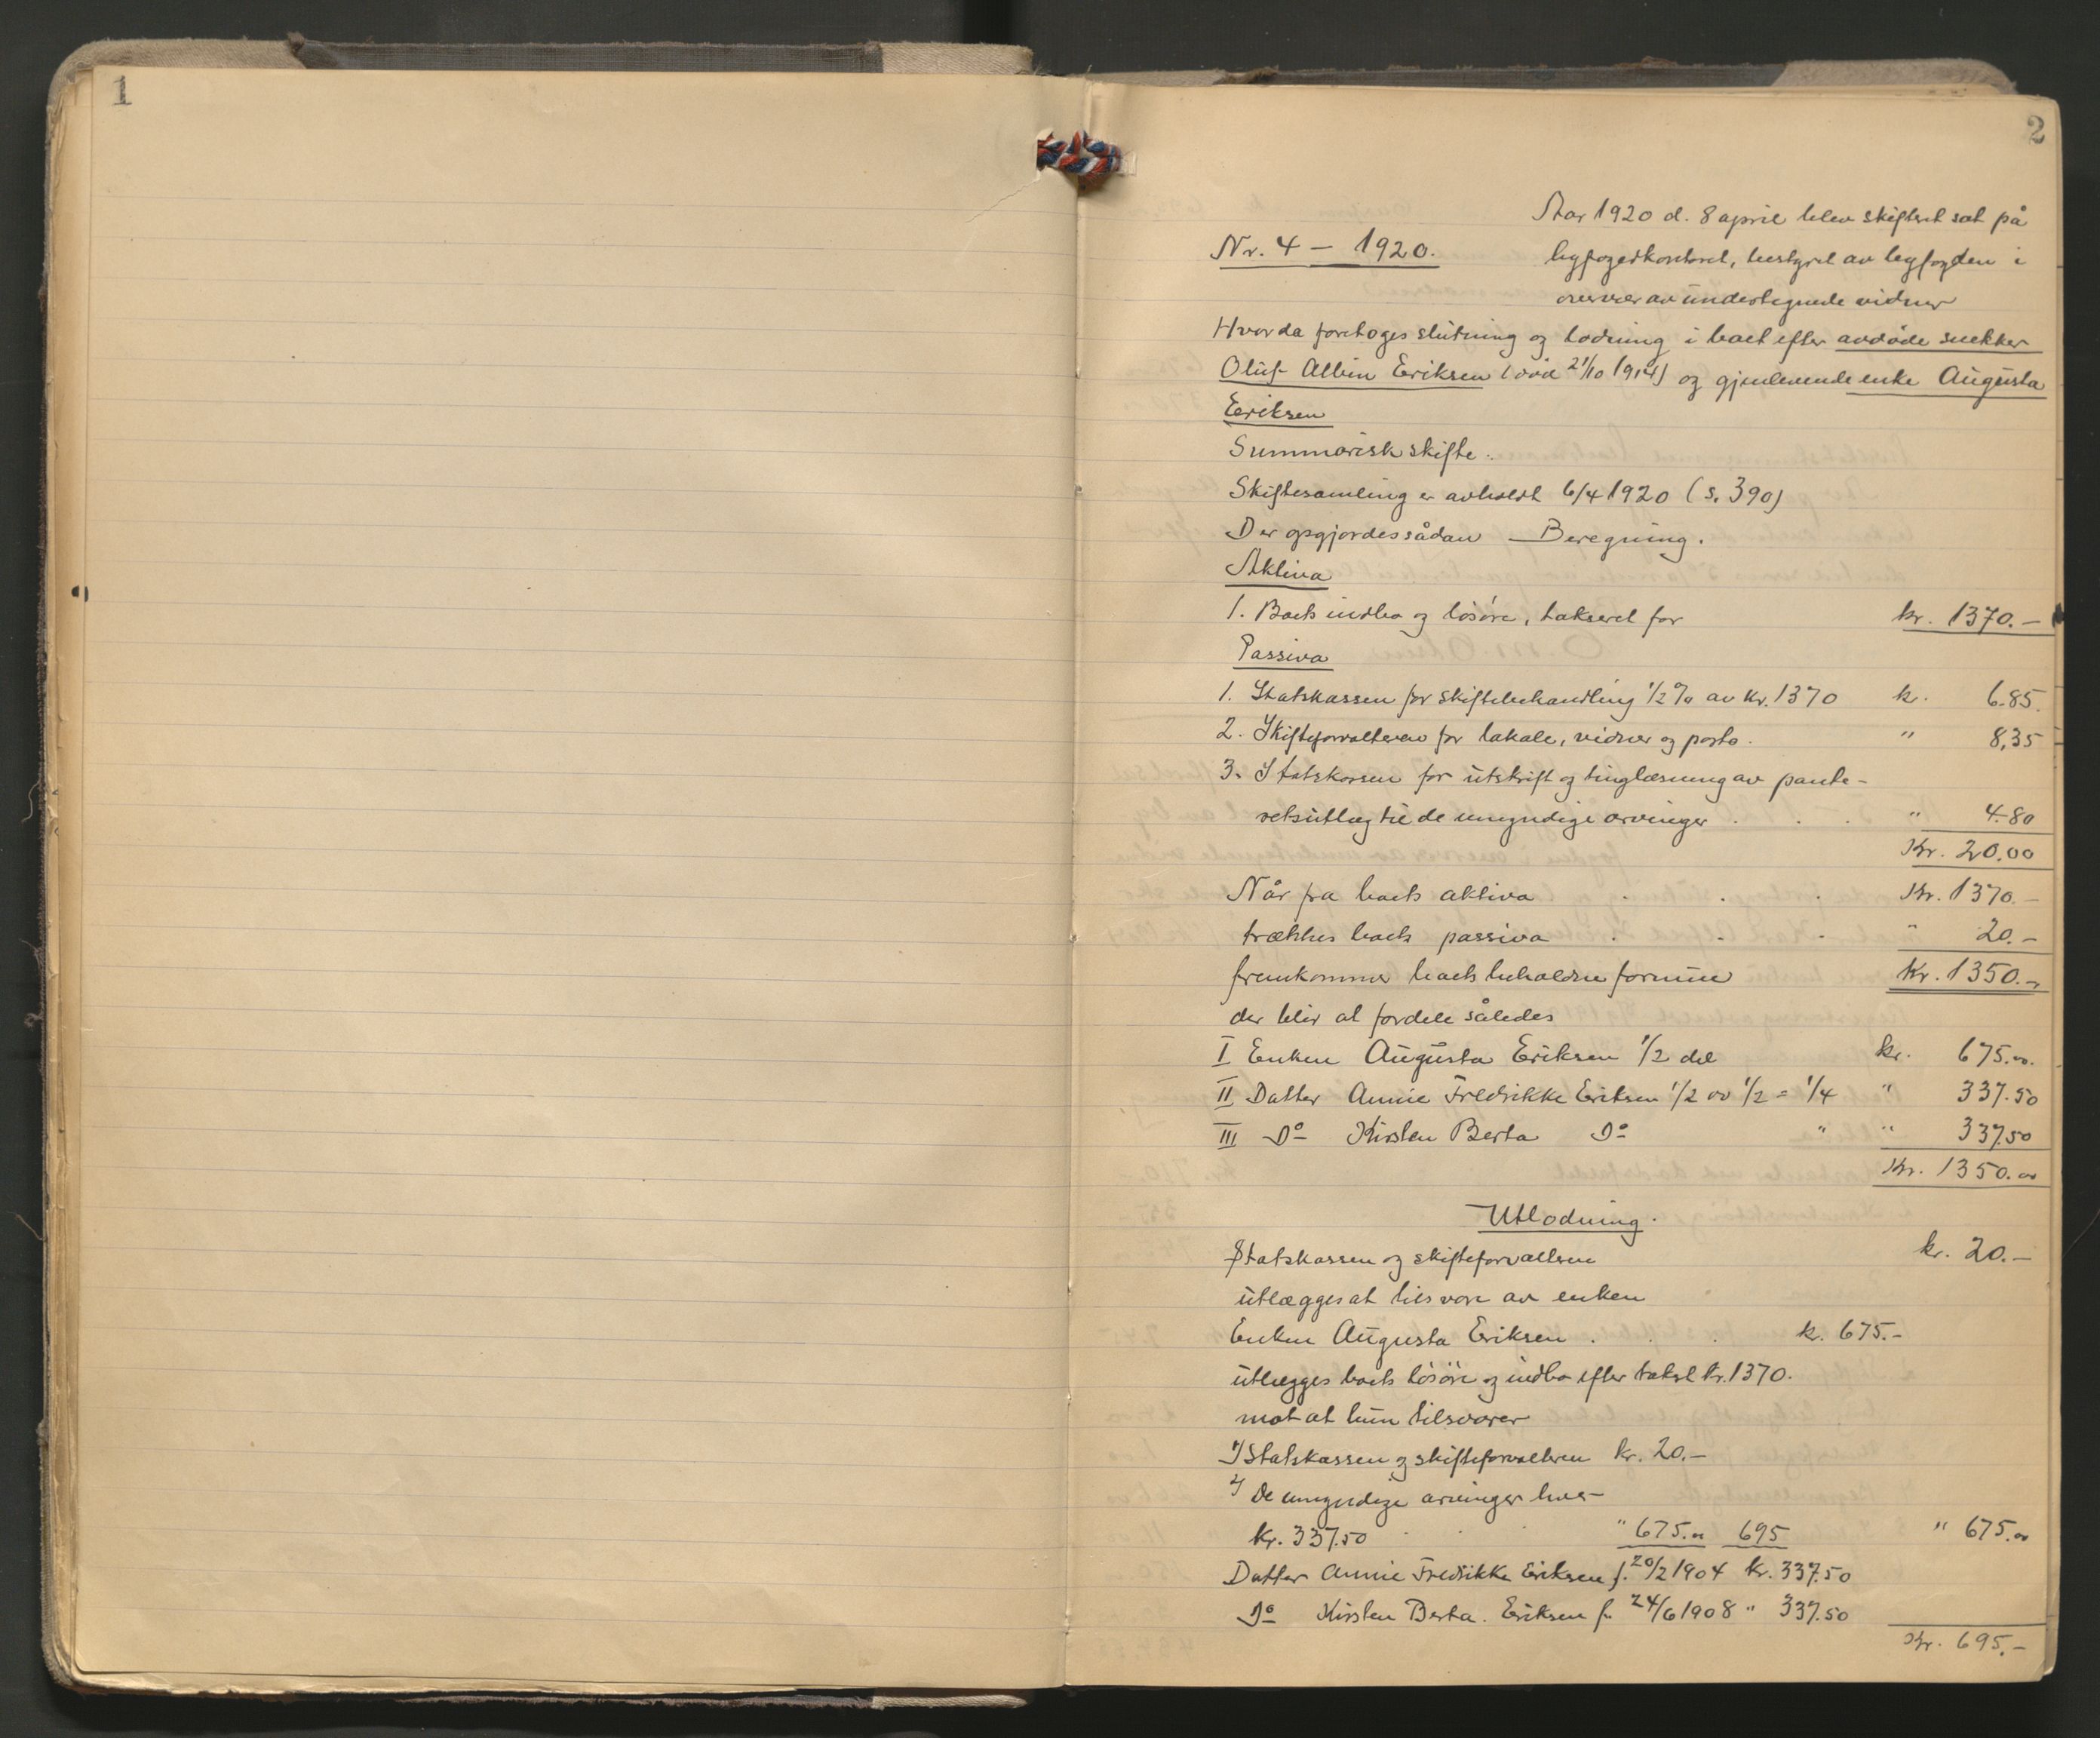 1
2
Aar 1920 d. 8 april blev skifteret sat på
Nr. 4 – 1920.
byfogedkontoret, bestyret av byfogden i
overvær av undertegnede vidner
Hvorda foretoges slutning og lodning i boet efter avdöde snekker
Oluf Albin Eriksen (död 21/10 1914) og gjenlevende enke Augusta
Eriksen
Summarisk skifte.
Skiftesamling er avholdt 6/4 1920 (s. 390)
Der opgjordes sådan Beregning.
Aktiva
1. Boets indbo og lösöre, takseret for kr. 1370.–
Passiva
1. Statskassen for skiftebehandling 1/2 % av kr. 1370 kr. 6.85.
2. Skifteforvalteren for lokale, vidner og porto. " 8,35
3. Statskassen for utskrift og tinglæsning av pante-
retsutlæg til de umyndige arvinger . . . " 4.80
Kr. 20.00
Når fra boets aktiva . . . Kr. 1370.–
trækkes boets passiva . . . " 20.–
fremkommer boets beholdne formue Kr. 1350.–
der blir at fordele således
I Enken Augusta Eriksen 1/2 del kr. 675.00.
II Datter Annie Fredrikke Eriksen 1/2 av 1/2 = 1/4 " 337.50
III Do Kirsten Berta Do " " 337.50
Kr. 1350.00
Utlodning.
Statskassen og skifteforvalteren kr. 20.–
utlægges at tilsvare av enken
Enken Augusta Eriksen . . . k. 675.–
utlægges boets lösöre og indbo efter takst kr. 1370.
mot at hun tilsvarer
1) Statskassen og skifteforvalteren kr. 20.–
2) De umyndige arvinger hver
kr. 337.50 . . " 675.00 695 " 675.00
Datter Annie Fredrikke Eriksen f. 20/2 1904 kr. 337.50
Do Kirsten Berta. Eriksen f. 24/6 1908 " 337.50
Kr. 695.–